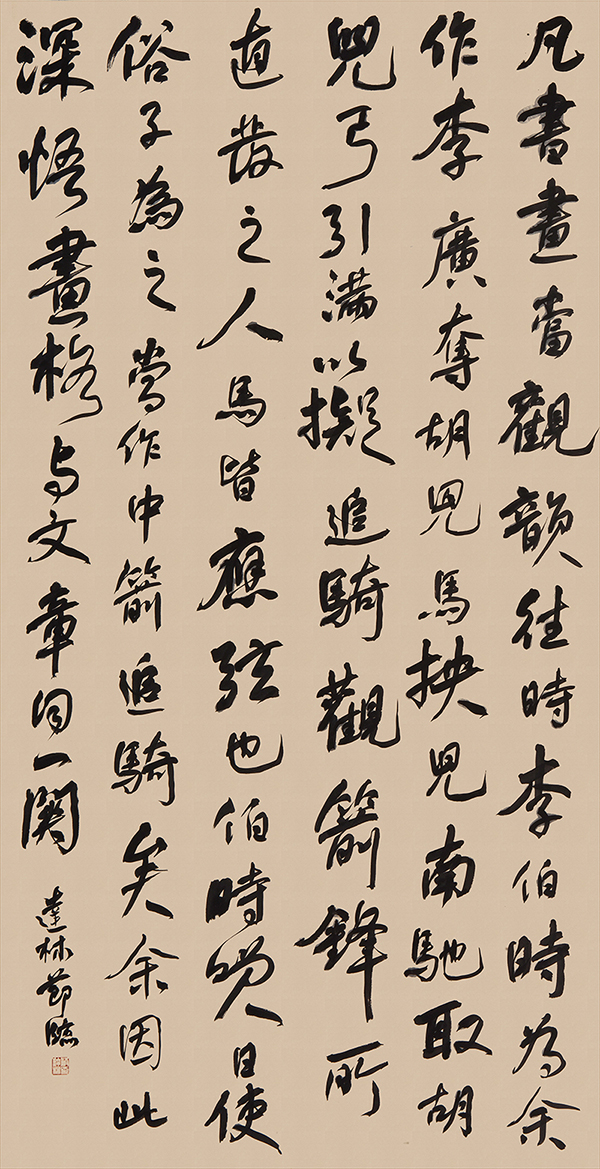 凡書畫當觀韻往時李伯時為余
作李廣奪胡兒馬挾兒南馳取胡
兒弓引滿以擬追騎觀箭鋒所
直發之人馬皆應弦也伯時咲曰使
俗子為之當作中箭追騎矣余因此
深悟畫格与文章同一關
達林節臨